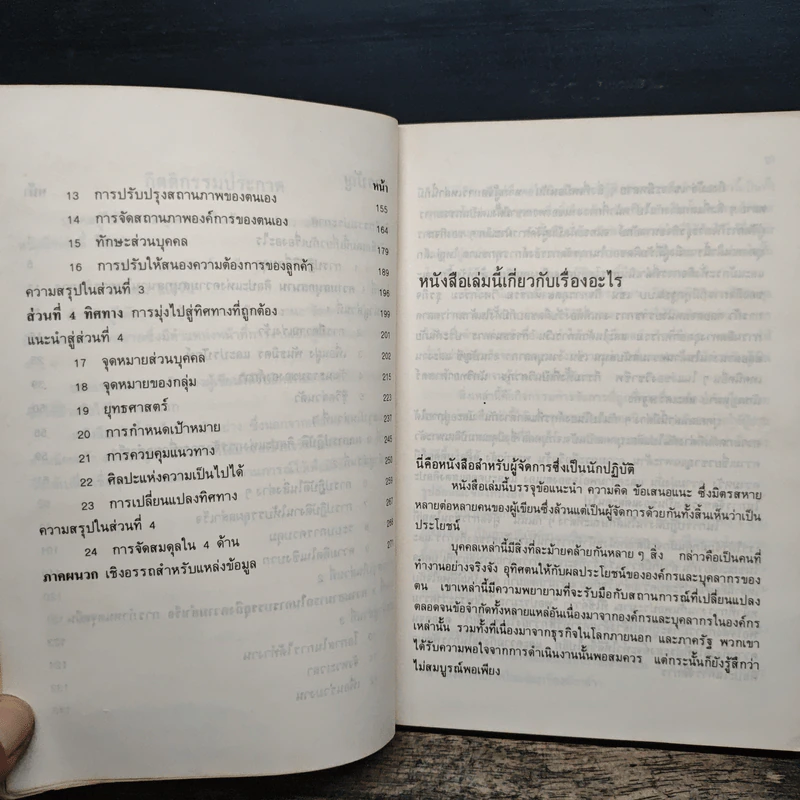 หน้า
13 การปรับปรุงสถานภาพของตนเอง 155
14 การจัดสถานภาพองค์การของตนเอง 164
15 ทักษะส่วนบุคคล 179
16 การปรับให้สนองความต้องการของลูกค้า 189
ความสรุปในส่วนที่ 3 196
ส่วนที่ 4 ทิศทาง การมุ่งไปสู่ทิศทางที่ถูกต้อง 199
แนะนำสู่ส่วนที่ 4 201
17 จุดหมายส่วนบุคคล 202
18 จุดหมายของกลุ่ม 215
19 ยุทธศาสตร์ 223
20 การกำหนดเป้าหมาย
21 การควบคุมแนวทาง 245
22 ศิลปะแห่งความเป็นไปได้ 250
23 การเปลี่ยนแปลงทิศทาง 259
ความสรุปในส่วนที่ 4 267
24 การจัดสมดุลใน 4 ด้าน
ภาคผนวก เชิงอรรถสำหรับแหล่งข้อมูล
หนังสือเล่มนี้เกี่ยวกับเรื่องอะไร
นี่คือหนังสือสำหรับผู้จัดการซึ่งเป็นนักปฏิบัติ
หนังสือเล่มนี้บรรจุข้อแนะนำ ความคิด ข้อเสนอแนะ ซึ่งมิตรสหาย
หลายต่อหลายคนของผู้เขียนซึ่งล้วนแต่เป็นผู้จัดการด้วยกันทั้งสิ้นเห็นว่าเป็น
ประโยชน์
บุคคลเหล่านี้มีสิ่งที่ละม้ายคล้ายกันหลาย ๆ สิ่ง กล่าวคือเป็นคนที่
ทำงานอย่างจริงจัง อุทิศตนให้กับผลประโยชน์ขององค์กรและบุคลากรของ
ตน เขาเหล่านี้มีความพยายามที่จะรับมือกับสถานการณ์ที่เปลี่ยนแปลง
ตลอดจนข้อจำกัดทั้งหลายแหล่อันเนื่องมาจากองค์กรและบุคลากรในองค์กร
เหล่านั้น รวมทั้งที่เนื่องมาจากธุรกิจในโลกภายนอก และภาครัฐ พวกเขา
ได้รับความพอใจจากการดำเนินงานนั้นพอสมควร แต่กระนั้นก็ยังรู้สึกว่า
ไม่สมบูรณ์พอเพียง